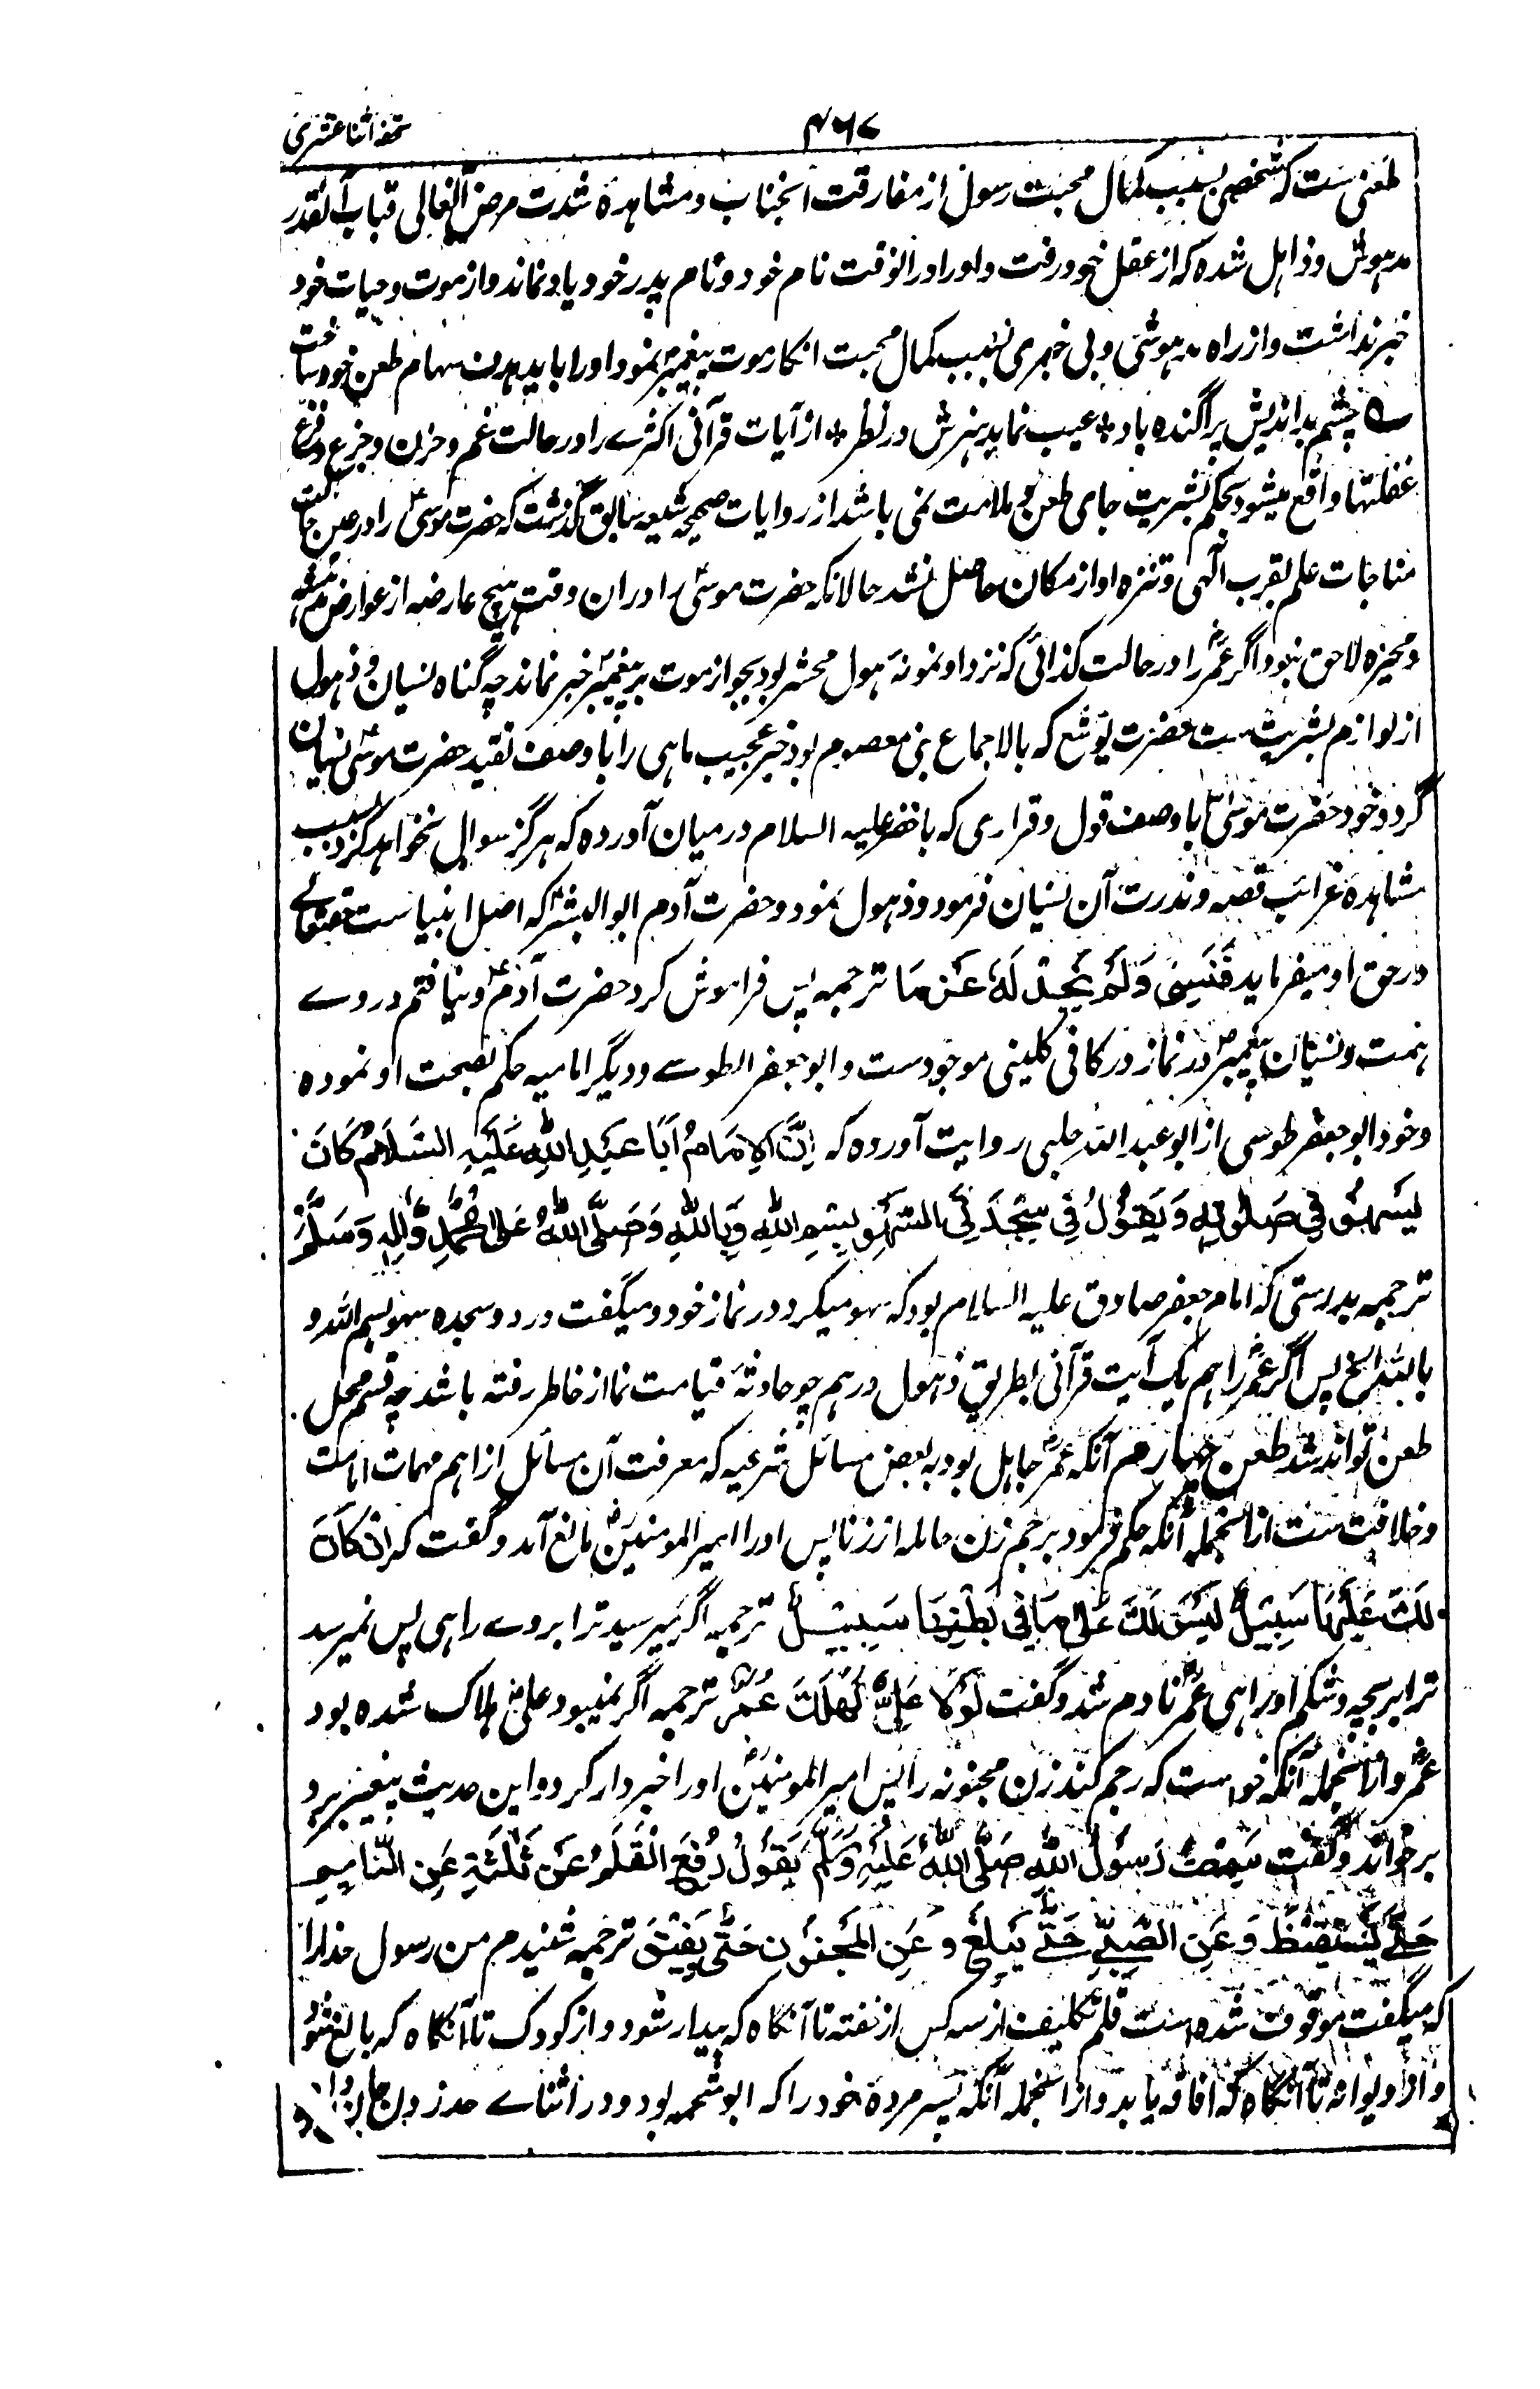 تحفه اثنا عشری
۴۶۷
طعنی ست که شخصی بسبب کمال محبت رسول از مفارقت آنجناب و مشاهدهٔ شدت مرض آنعالی قباب آنقدر
مدهوش و ذاهل شده که از عقل خود رفت و اورا درانوقت نام خود و نام پدر خود یاد نماند و از موت و حیات خود
خبر نداشت و از راه مدهوشی و بی خبری بسبب کمال محبت انکار موت پیغمبر نمود اورا باید هدف سهام طعن خود ساخت
چشم بد اندیش پراگنده باد * عیب نماید هنرش در نظر * از آیات قرآنی اکثرے را در حالت غم و حزن و جزع و فزع
غفلتها واقع میشود بحکم بشریت جای طعن و ملامت نمی باشد از روایات صحیحه شیعه سابق گذشت که حضرت موسی را در عین حالت
مناجات علم بقرب الٰهی و تنزه او از مکان حاصل نشد حالانکه حضرت موسیٰ را دران وقت هیچ عارضه از عوارض مدهشه
و محیره لاحق نبود اگر عمر را در حالت کذائی که نزد او نمونهٔ هول محشر بود بجواز موت بر پیغمبر خبر نماند چه گناه نسیان و ذهول
از لوازم بشریت ست حضرت یوشع که بالاجماع نبی معصوم بود خبر عجیب ماهی را با وصف تقید حضرت موسیٰ نسیان
کرد و خود حضرت موسیٰ با وصف قول و قراری که با خضر علیه السلام درمیان آورده که هرگز سوال نخواهد کرد بسبب
مشاهدهٔ غرائب قصه و ندرت آن نسیان فرمود و ذهول نمود و حضرت آدم ابو البشر که اصل انبیاست حقتعالے
درحق او میفرماید فَنَسِیَ وَلَمْ نَجِدْ لَهٗ عَزْمًا ترجمه پس فراموش کرد حضرت آدم و نیافتم در وے
همت و نسیان پیغمبر در نماز در کافی کلینی موجود ست و ابو جعفر الطوسے و دیگر امامیه حکم بصحت او نموده
و خود ابو جعفر طوسی از ابو عبد الله حلبی روایت آورده که اِنَّ الْاِمَامَ اَبَا عَبْدِ اللّٰهِ عَلَیْهِ السَّلَامُ کَانَ
یَسْهُو فِی صَلٰوتِهٖ وَ یَقُوْلُ فِی سَجْدَتَیِ السَّهْوِ بِسْمِ اللّٰهِ وَ بِاللّٰهِ وَصَلَّی اللّٰهُ عَلٰی مُحَمَّدٍ وَّاٰلِهٖ وَسَلَّمَ
ترجمه بدرستی که امام جعفر صادق علیه السلام بود که سهو میکرد در نماز خود و میگفت در دو سجدهٔ سهو بسم الله و
بالله الخ پس اگر عمر را هم یک آیت قرآنی بطریق ذهول در همچو حادثهٔ قیامت نما از خاطر رفته باشد چه قسم محل
طعن تواند شد طعن چهارم آنکه عمر جاهل بود به بعض مسائل شرعیه که معرفت آن مسائل از اهم مهمات امامت
و خلافت ست ازانجمله آنکه حکم فرمود برجم زن حامله از زنا پس اورا امیر المومنین مانع آمد و گفت که اِنْ کَانَ
لَکَ عَلَیْهَا سَبِیْلٌ لَیْسَ لَکَ عَلٰی مَا فِی بَطْنِهَا سَبِیْلٌ ترجمه اگر میرسد ترا بروے راهی پس نمیرسد
ترا بر بچهٔ شکم او راهی عمر نادم شد و گفت لَوْلَا عَلِیٌّ لَهَلَکَ عُمَرُ ترجمه اگر نمیبود علی هلاک شده بود
عمر و ازانجمله آنکه خواست که رجم کند زن مجنونه را پس امیر المومنین اورا خبردار کرد و این حدیث پیغمبر برو
برخواند و گفت سَمِعْتُ رَسُوْلَ اللّٰهِ صَلَّی اللّٰهُ عَلَیْهِ وَسَلَّمَ یَقُوْلُ رُفِعَ الْقَلَمُ عَنْ ثَلٰثَةٍ عَنِ النَّائِمِ
حَتّٰی یَسْتَیْقِظَ وَ عَنِ الصَّبِیِّ حَتّٰی یَبْلُغَ وَ عَنِ الْمَجْنُوْنِ حَتّٰی یُفِیْقَ ترجمه شنیدم من رسول خدا را
که میگفت موقوف شده است قلم تکلیف از سه کس از خفته تا آنگاه که بیدار شود و از کودک تا آنگاه که بالغ شود
و از دیوانه تا آنگاه که افاقه یابد و ازانجمله آنکه پسر مردهٔ خود را که ابو شحمه بود و در اثناے حد زدن